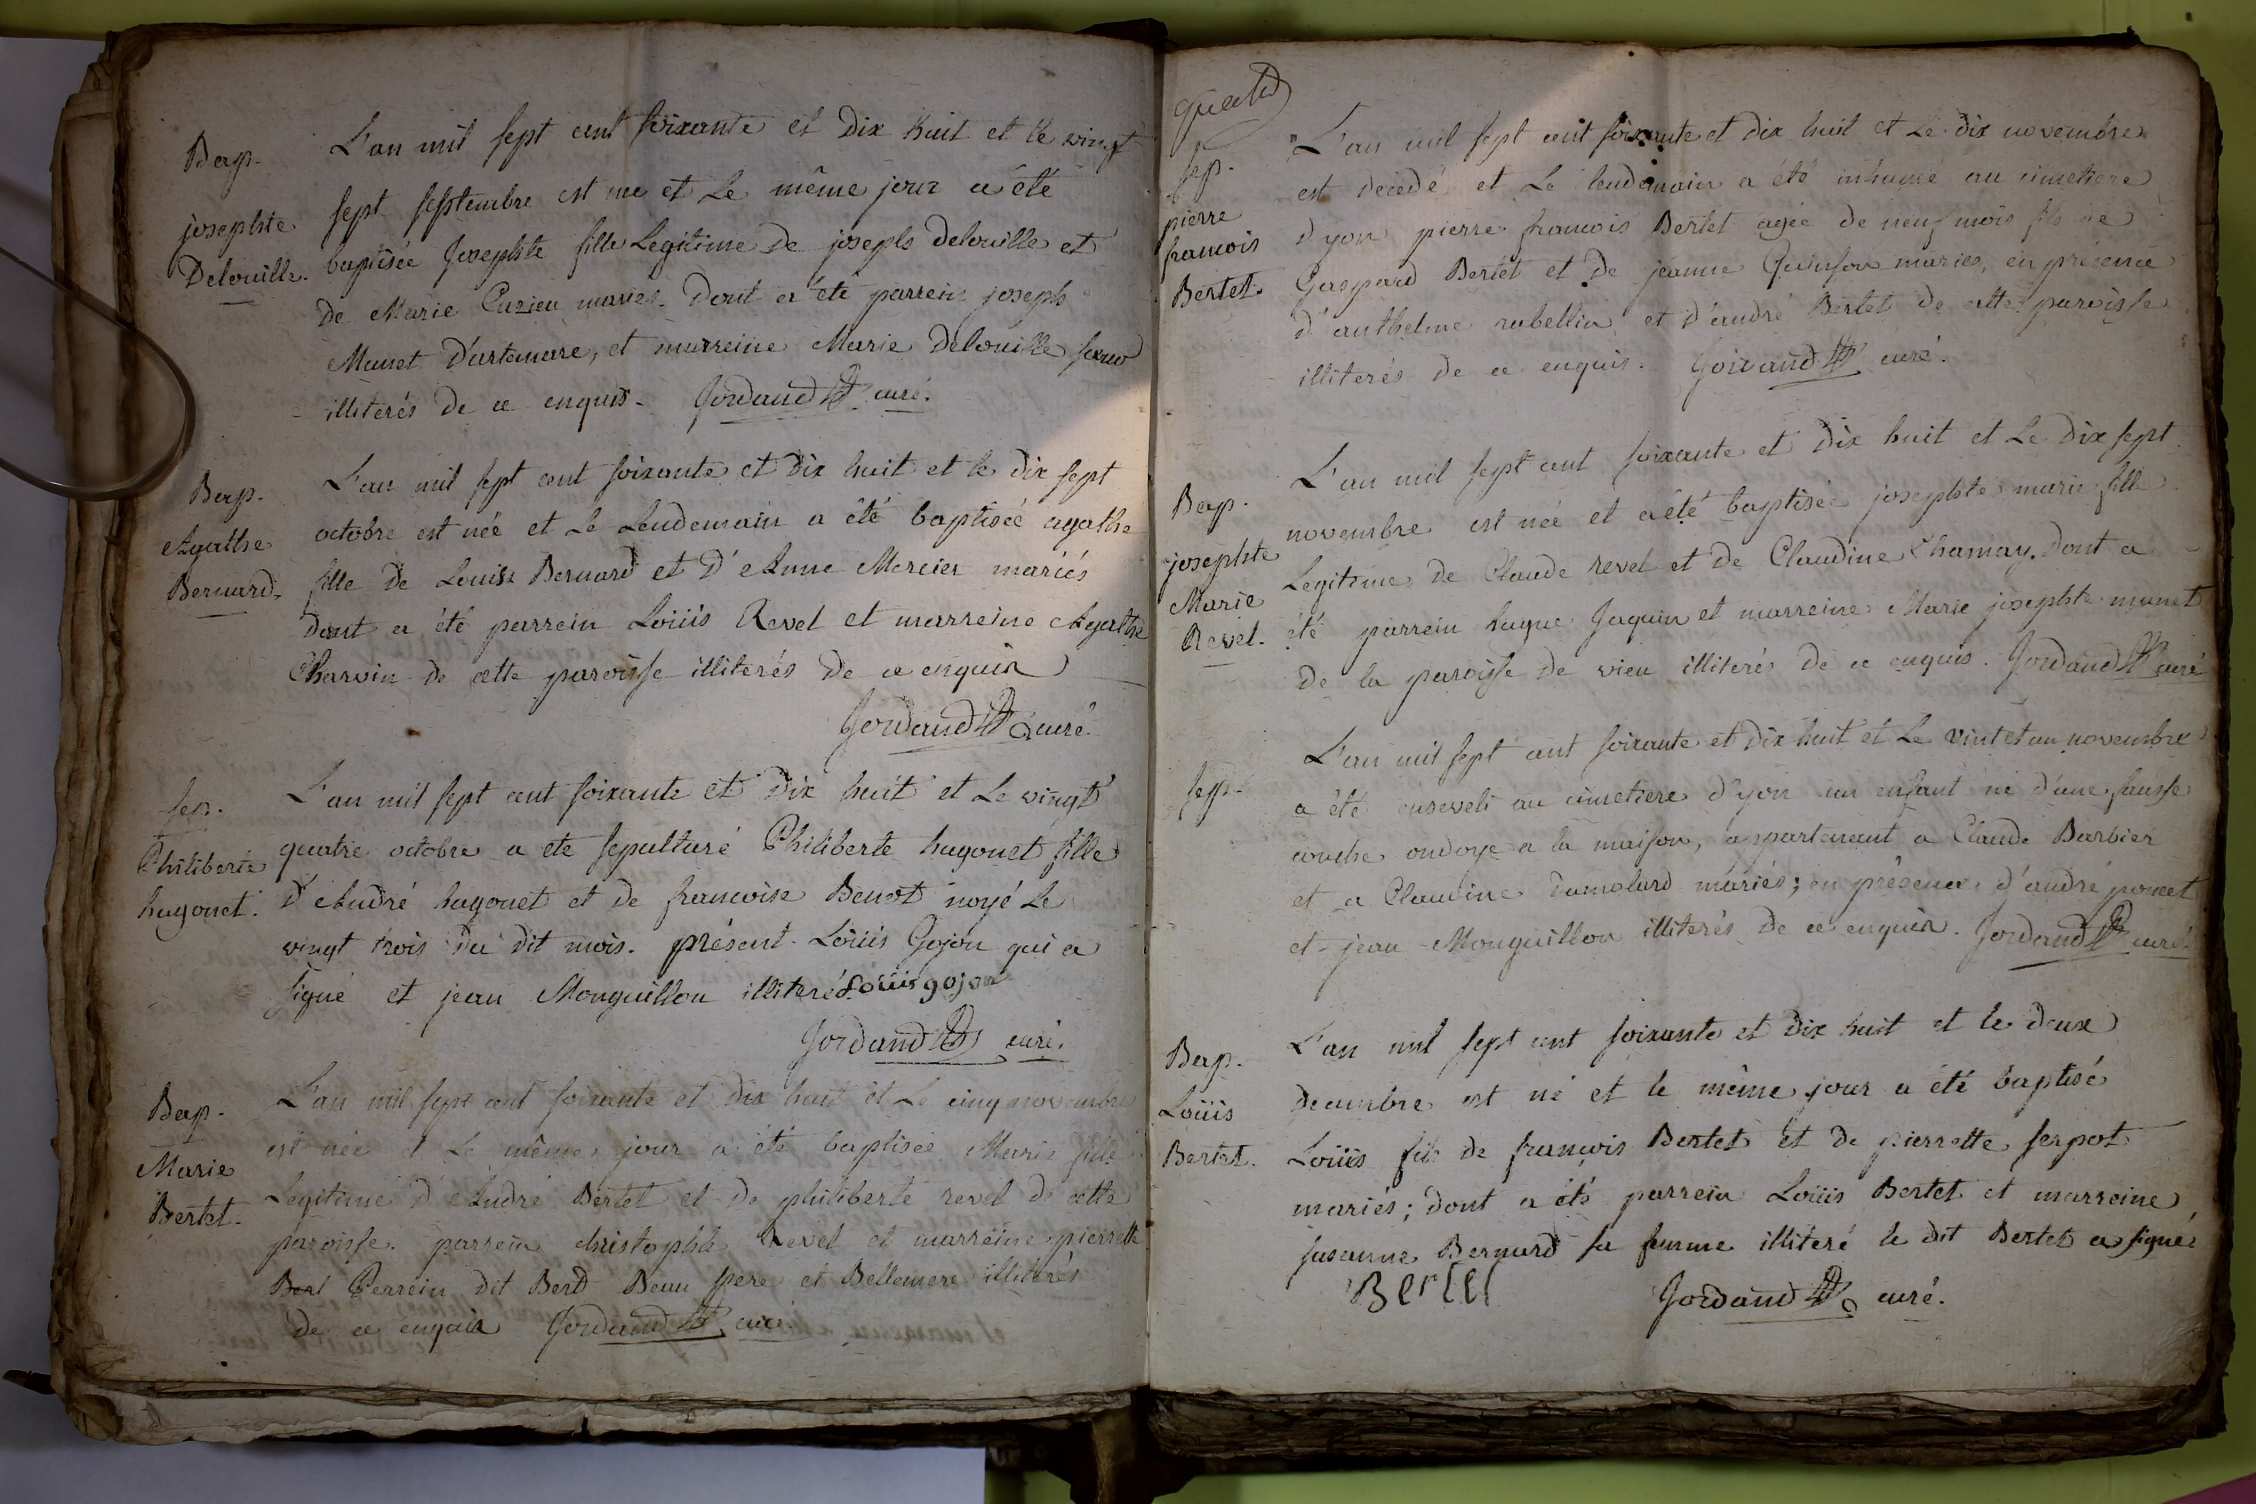 Bap.
josephte
Delouille.
L'an mil sept cent soixante et dix huit et le vingt
sept septembre est née et le même jour a été
baptisée Josephte fille Legitime de joseph delouille et
de Marie Cuzieu mariés. Dont a été parrein joseph
Munet d'artemare, et marreine Marie delouille
illiterés de ce enquis. Jordand curé.
Bap.
Agathe
Bernard.
L'an mil sept cent soixante et dix huit et le dix sept
octobre est née et le Lendemain a été baptisée agathe
fille de Louis Bernard et d'Anne Mercier mariés
dont a été parrein Loüis Revel et marreine Agathe
Charvin de cette paroisse illiterés de ce enquis
Jordand curé.
sep.
Philiberte
hugonet.
L'an mil sept cent soixante et dix huit et Le vingt
quatre octobre a ete sepulturé Philiberte hugonet fille
d'André hugonet et de francoise Benot noyé Le
vingt trois du dit mois. présent Loüis Gojon qui a
signé et jean Monguillon illiteré Loüis gojon
Jordand curé.
Bap.
Marie
Bertet.
L'an mil sept cent soixante et dix huit et Le cinq novembre
est née et Le même jour a été baptisée Marie fille
Legitime d'André Bertet et de philiberte revel de cette
paroisse. parrein christophle Revel et marreine pierrette
Perrein dit Berd Beau pere et Bellemere illiterés
de ce enquis Jordand curé.
sep.
pierre
francois
Bertet.
L'an mil sept cent soixante et dix huit et Le dix novembre
est decedé et Le lendemain a été inhumé au cimetiere
d'yon pierre francois Bertet agée de neuf mois fils de
Gaspard Bertet et de jeanne Quinson mariés, en présence
d'anthelme rubellin et d'andré Bertet de cette paroisse
illiterés de ce enquis. Jordand curé.
Bap.
josephte
Marie
Revel.
L'an mil sept cent soixante et dix huit et Le dix sept
novembre est née et a été baptisée josephte marie fille
Legitime de Claude revel et de Claudine Chamay. Dont a
été parrein hugue Jaquin et marreine Marie josephte munet
de la paroisse de vieu illiteré de ce enquis. Jordand curé
sep.
L'an mil sept cent soixante et dix huit et Le vint et un novembre
a été enseveli au cimetiere d'yon un enfant né d'une fausse
couche ondoye a la maison, appartenant a Claude Barbier
et a Claudine dumolard mariés; en présence d'andré poncet
et jean Monguillon illiterés de ce enquis. Jordand curé.
Bap.
Loüis
Bertet.
L'an mil sept cent soixante et dix huit et le deux
decembre est né et le même jour a été baptisé
Loüis fils de francois Bertet et de pierrette serpot
mariés; dont a été parrein Loüis Bertet et marreine
susanne Bernard sa femme illiteré le dit Bertet a signé
Bertet
Jordand curé.